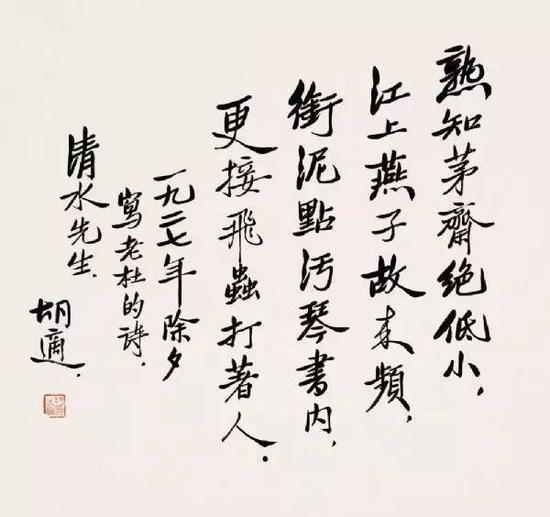 熟知茅齋絕低小，
江上燕子故来頻，
銜泥點汚琴書內，
更接飛蟲打著人．
一九二七年除夕
寫老杜的詩．
清水先生．
胡適．